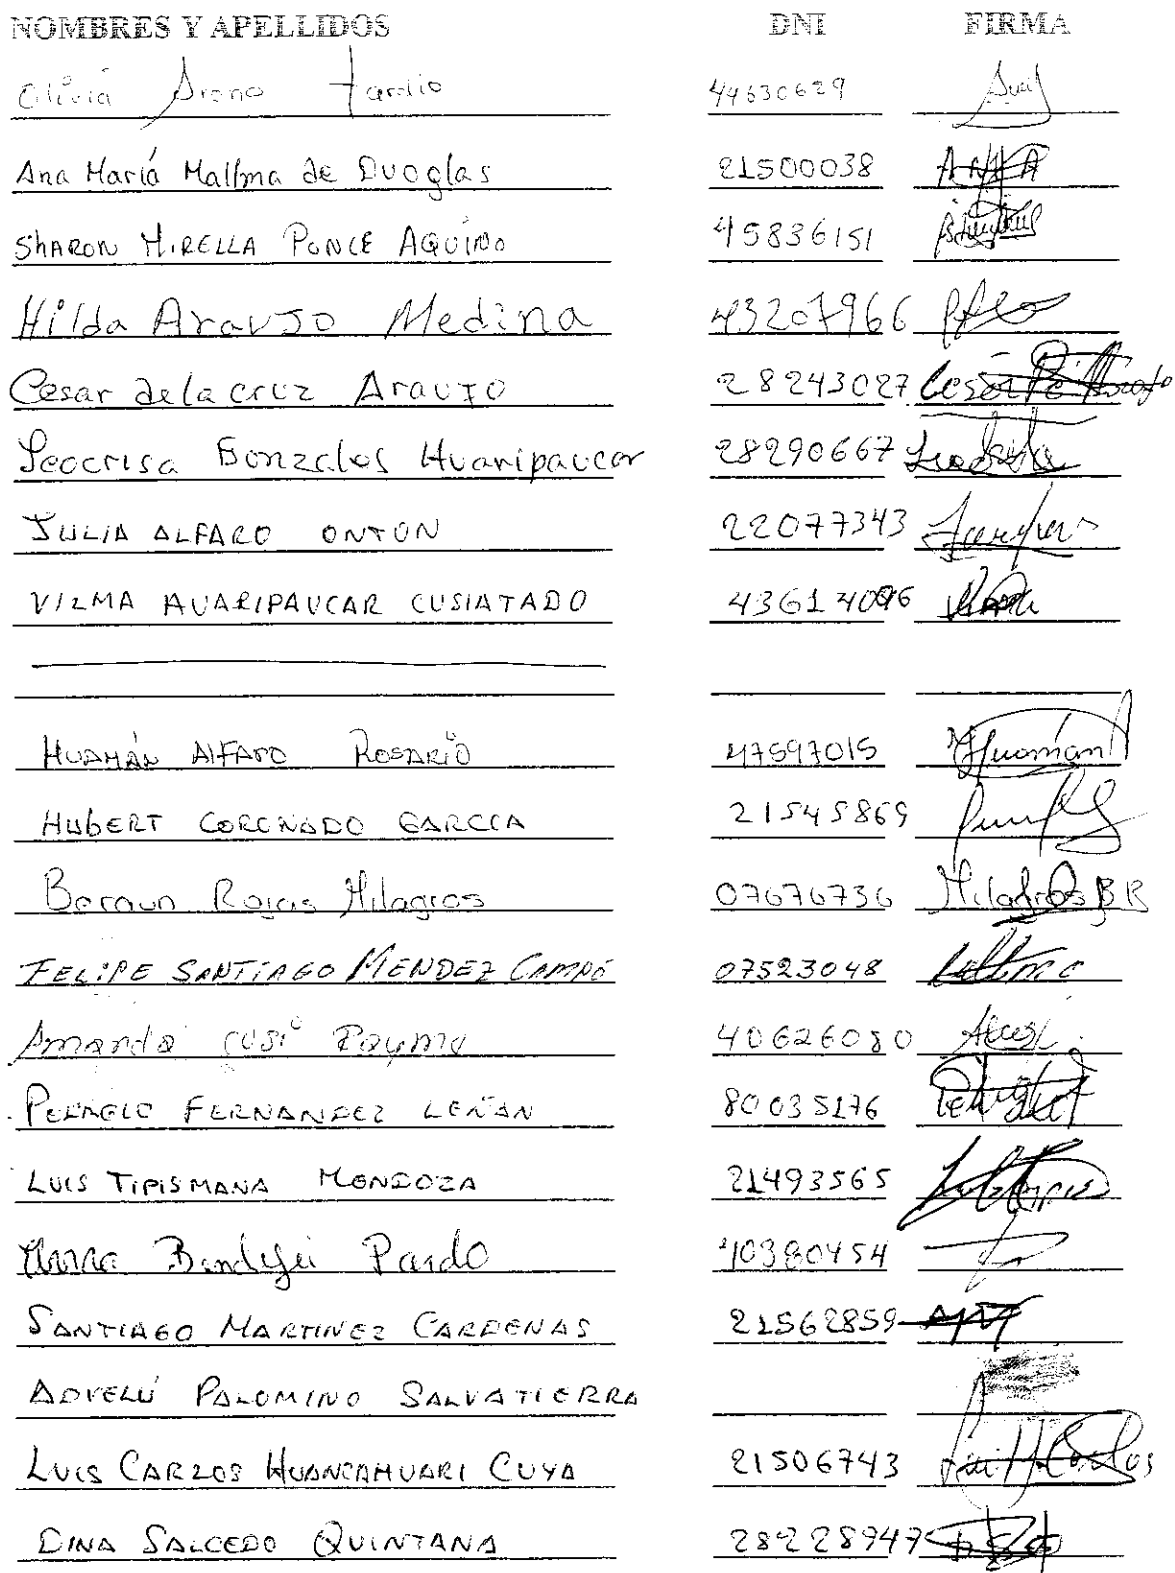 NOMBRES Y APELLIDOS DNI FIRMA
Olivia Arono Tardio 44630629
Ana María Mallma de Duoglas 21500038
SHARON MIRELLA PONCE AQUINO 45836151
Hilda Araujo Medina 43207966
Cesar de la cruz Araujo 28243027
Leocrisa Gonzales Huaripaucar 28290667
JULIA ALFARO ONTON 22077343
VILMA AUARIPAUCAR CUSIATADO 43614096
HUAMÁN AlFARO ROSARIO 47597015 Huamán
HUBERT CORONADO GARCIA 21545869
Beraun Rojas Milagros 07676736 Milagros B R
FELIPE SANTIAGO MENDEZ CAMPO 07523048
Amanda Cusi Payma 40626080
FERNANDEZ LEÑAN 80035176
LUIS TIPISMANA MENDOZA 21493565
Bendezu Pardo 40380454
SANTIAGO MARTINEZ CARDENAS 21562859
PALOMINO SALVATIERRA
LUIS CARLOS HUANCAHUARI CUYA 21506743
DINA SALCEDO QUINTANA 28228947